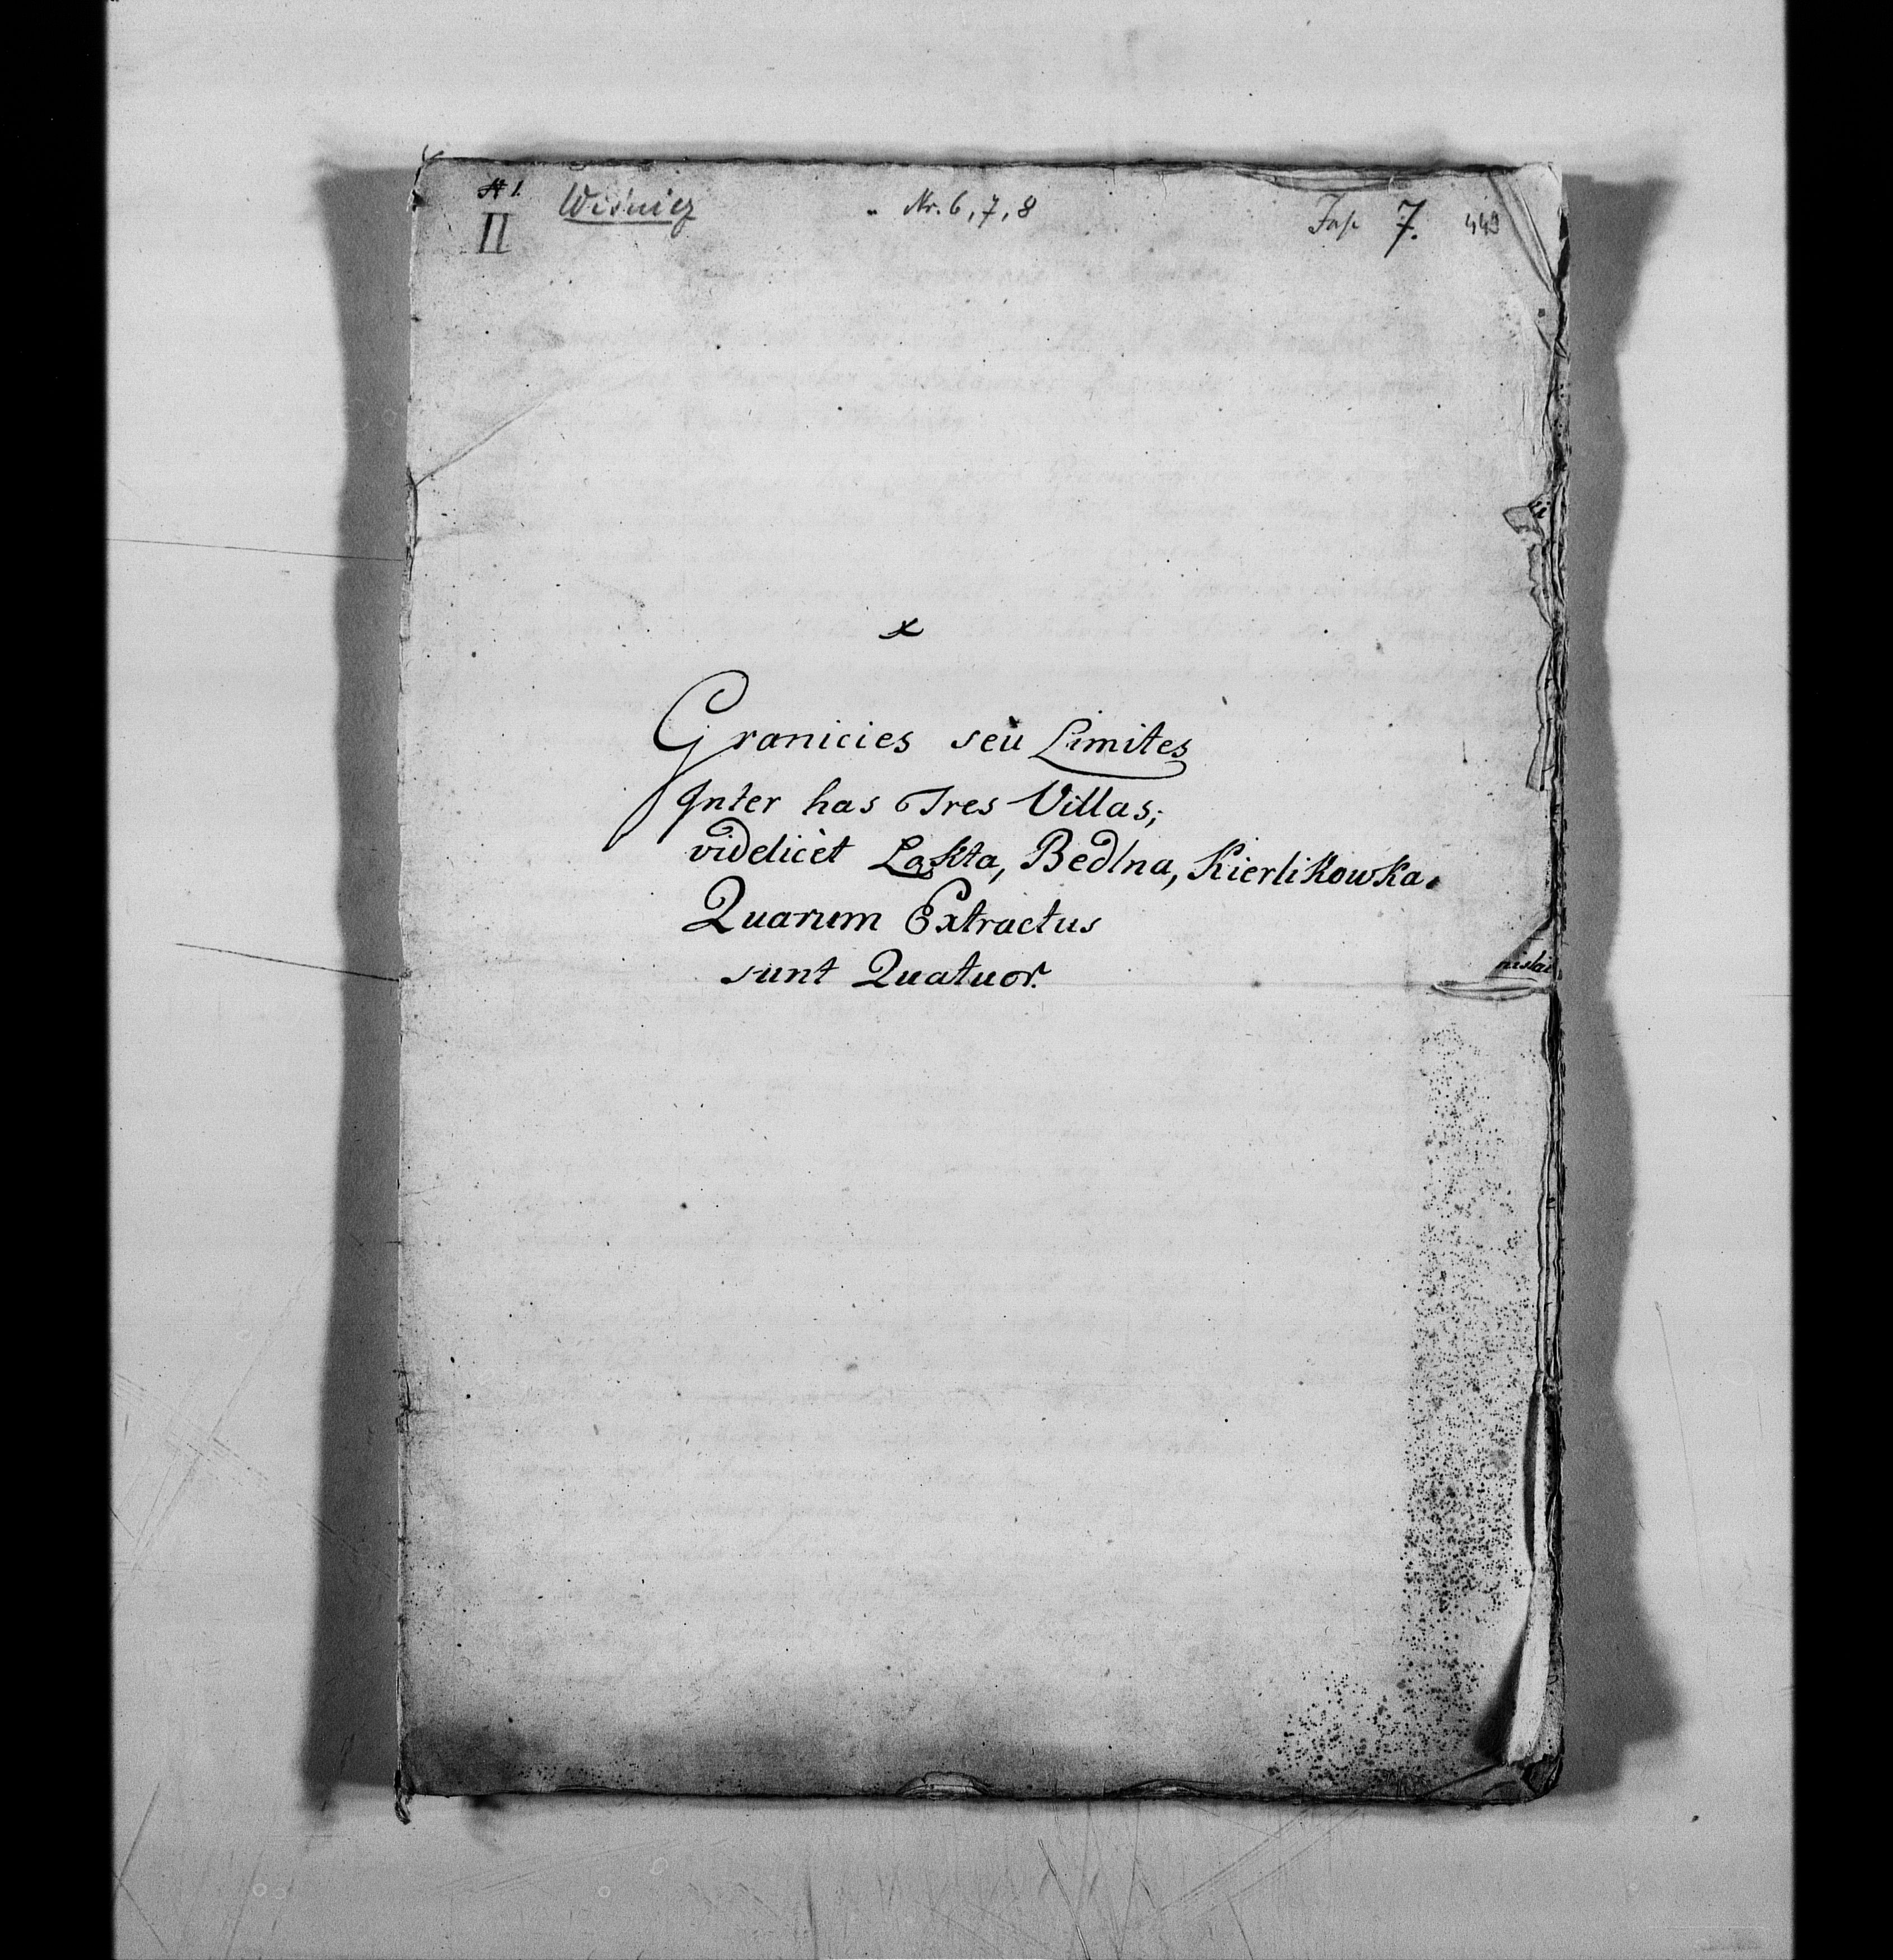 # 1. Wiśnicz Nr. 6, 7, 8 Fasc. 7. 449
II
x
Granicies seù Limites
Inter has Tres Villas;
videlicèt Łąkta, Bedlna, Kierlikowka.
Quarum Extractus
sunt Quatuor.
nislai